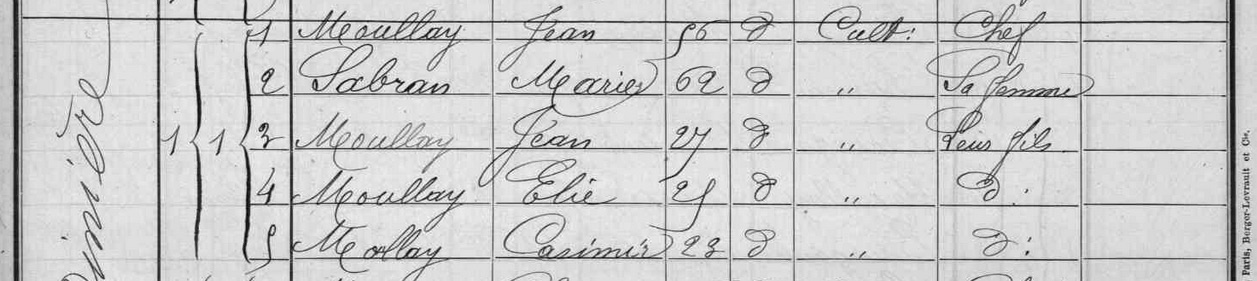 1 Moullay Jean 56 d Cult: Chef
2 Sabran Marie 62 d " Sa femme
1 1 3 Moullay Jean 27 d " Leur fils
4 Moullay Elie 25 d " d:
5 Mollay Casimir 23 d " d:
Paris, Berger-Levrault et Cie.